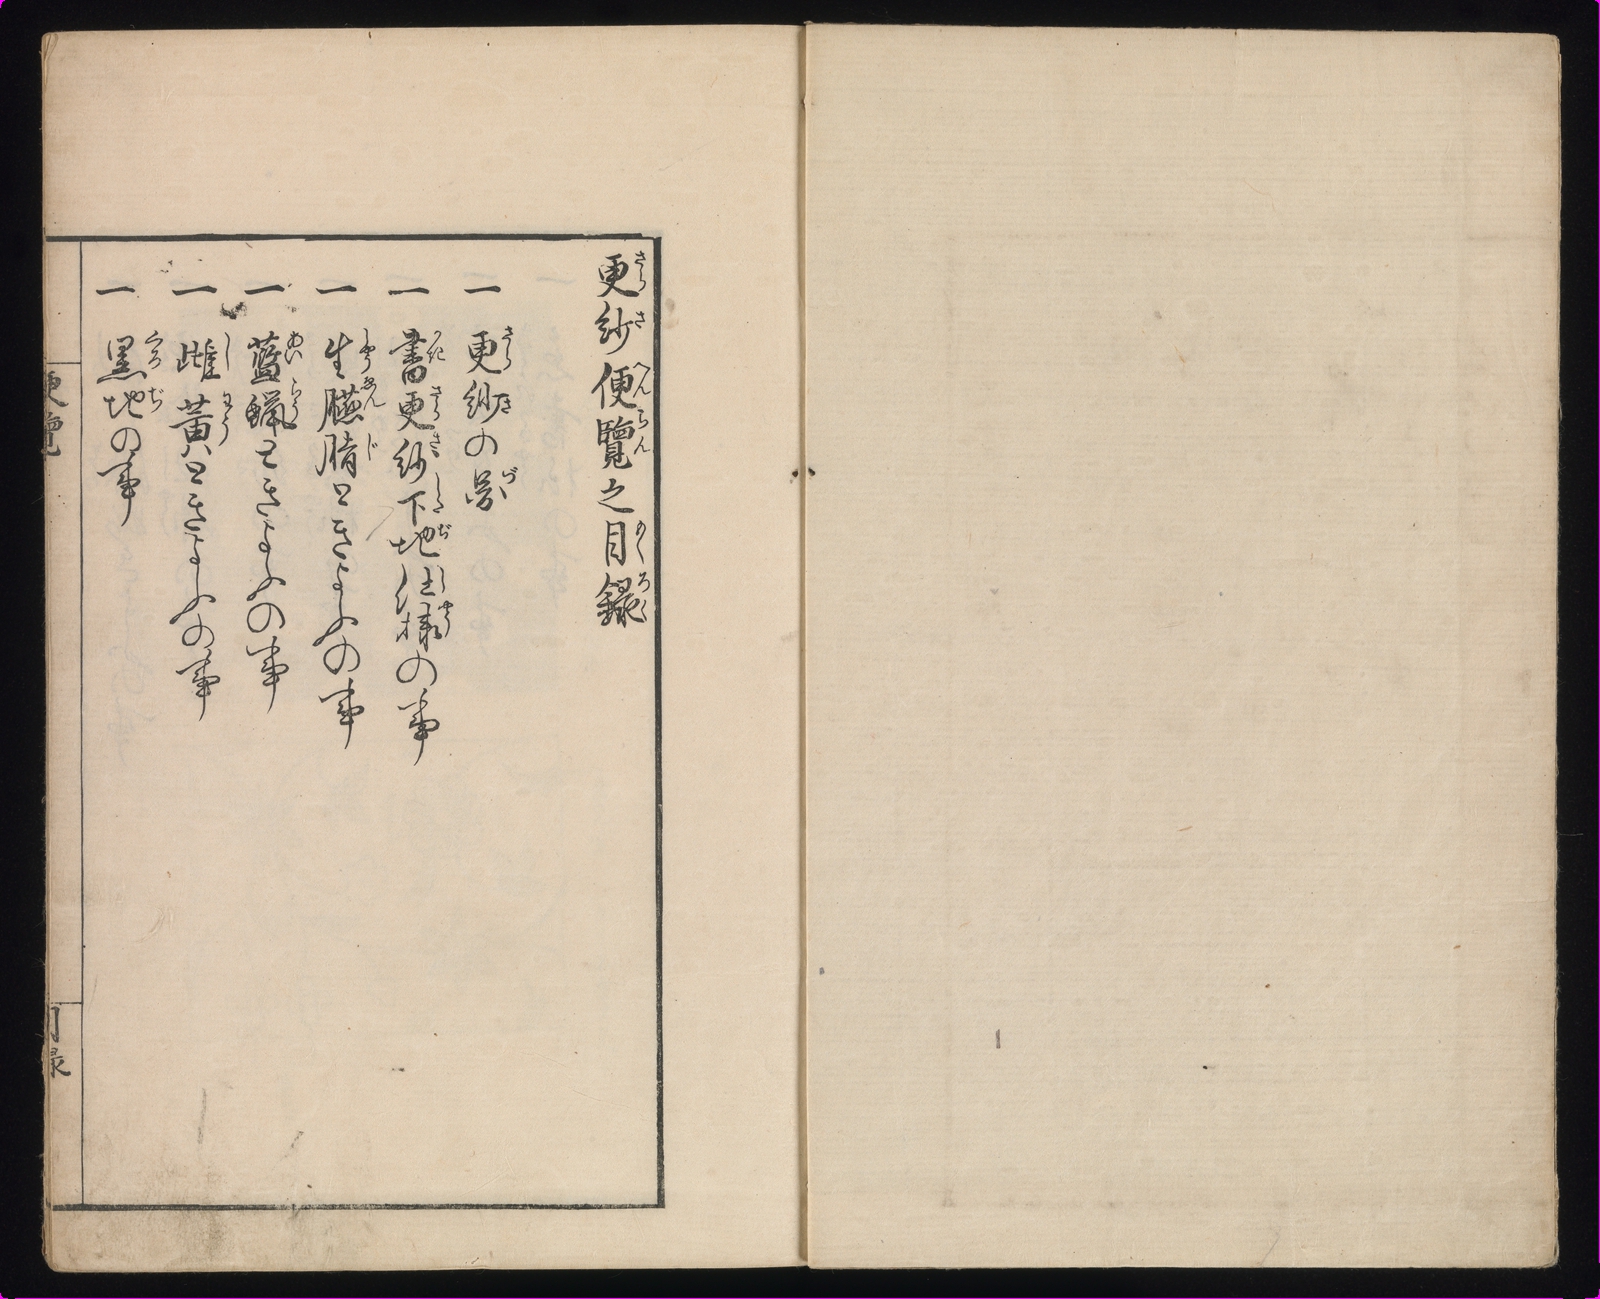 更紗便覧之目録
一 更紗の図
一 書更紗下地仕様の事
一 生臙脂ときようの事
一 藍蝋ときようの事
一 雌黄ときようの事
一 黒地の事
便覧
目録